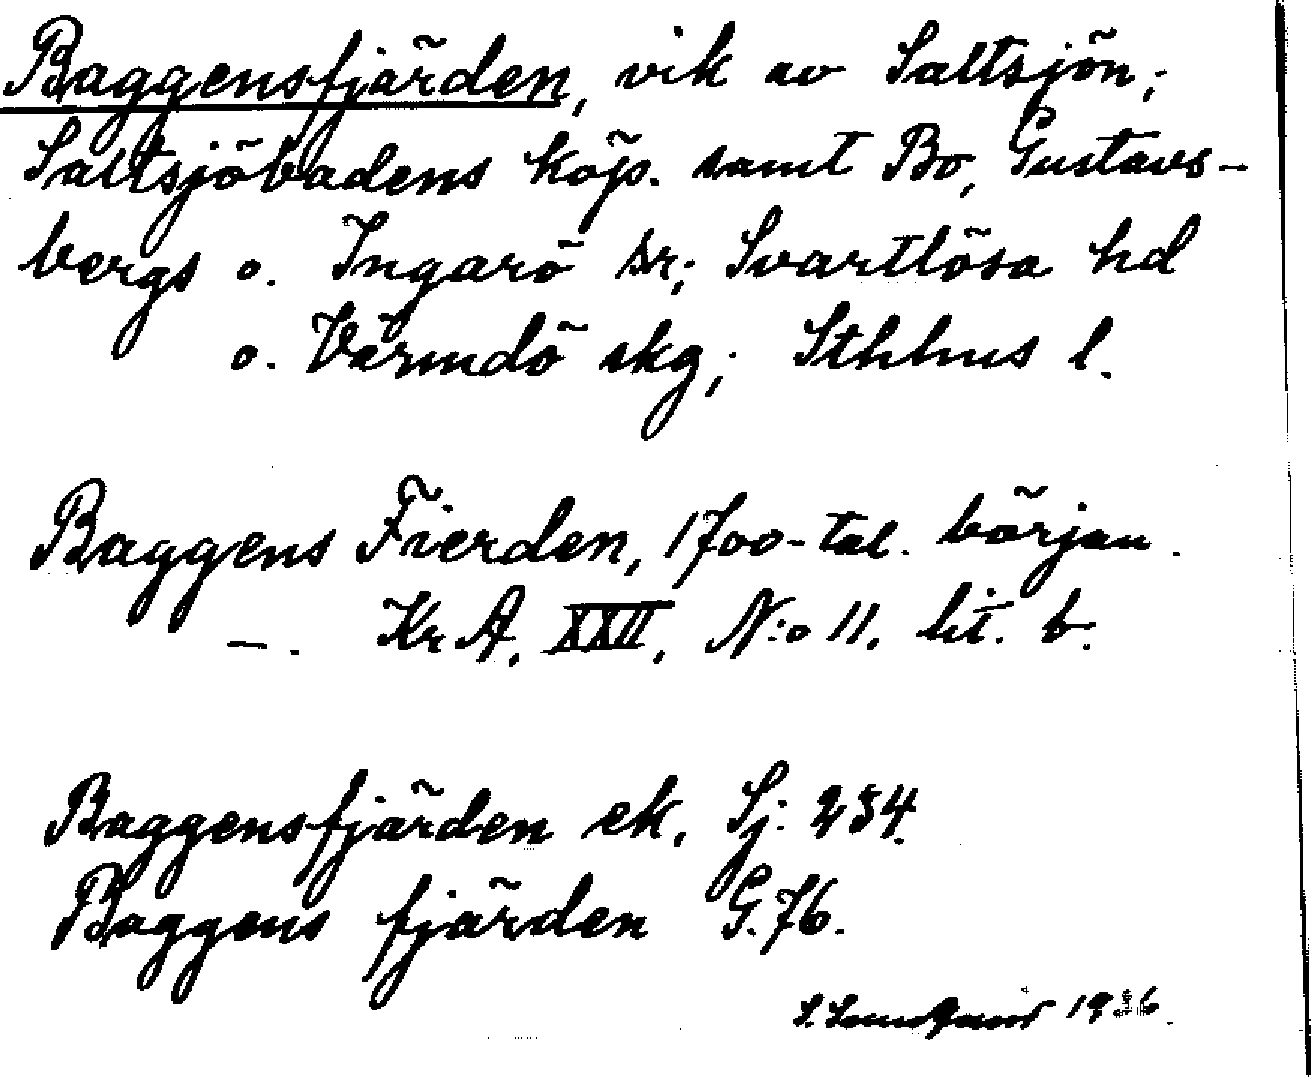 Baggensfjärden, vik av Saltsjön;
Saltsjöbadens köp. samt Bo, Gustavs-
bergs o. Ingarö sr; Svartlösa hd
o. Värmdö skg; Sthlms l.
Baggens Fierden, 1700-tal. början.
—. Kr A. XXII, N:o 11. lit. b.
Baggensfjärden ek. Sj: 234.
Baggens fjärden G. 76.
S. 1936.